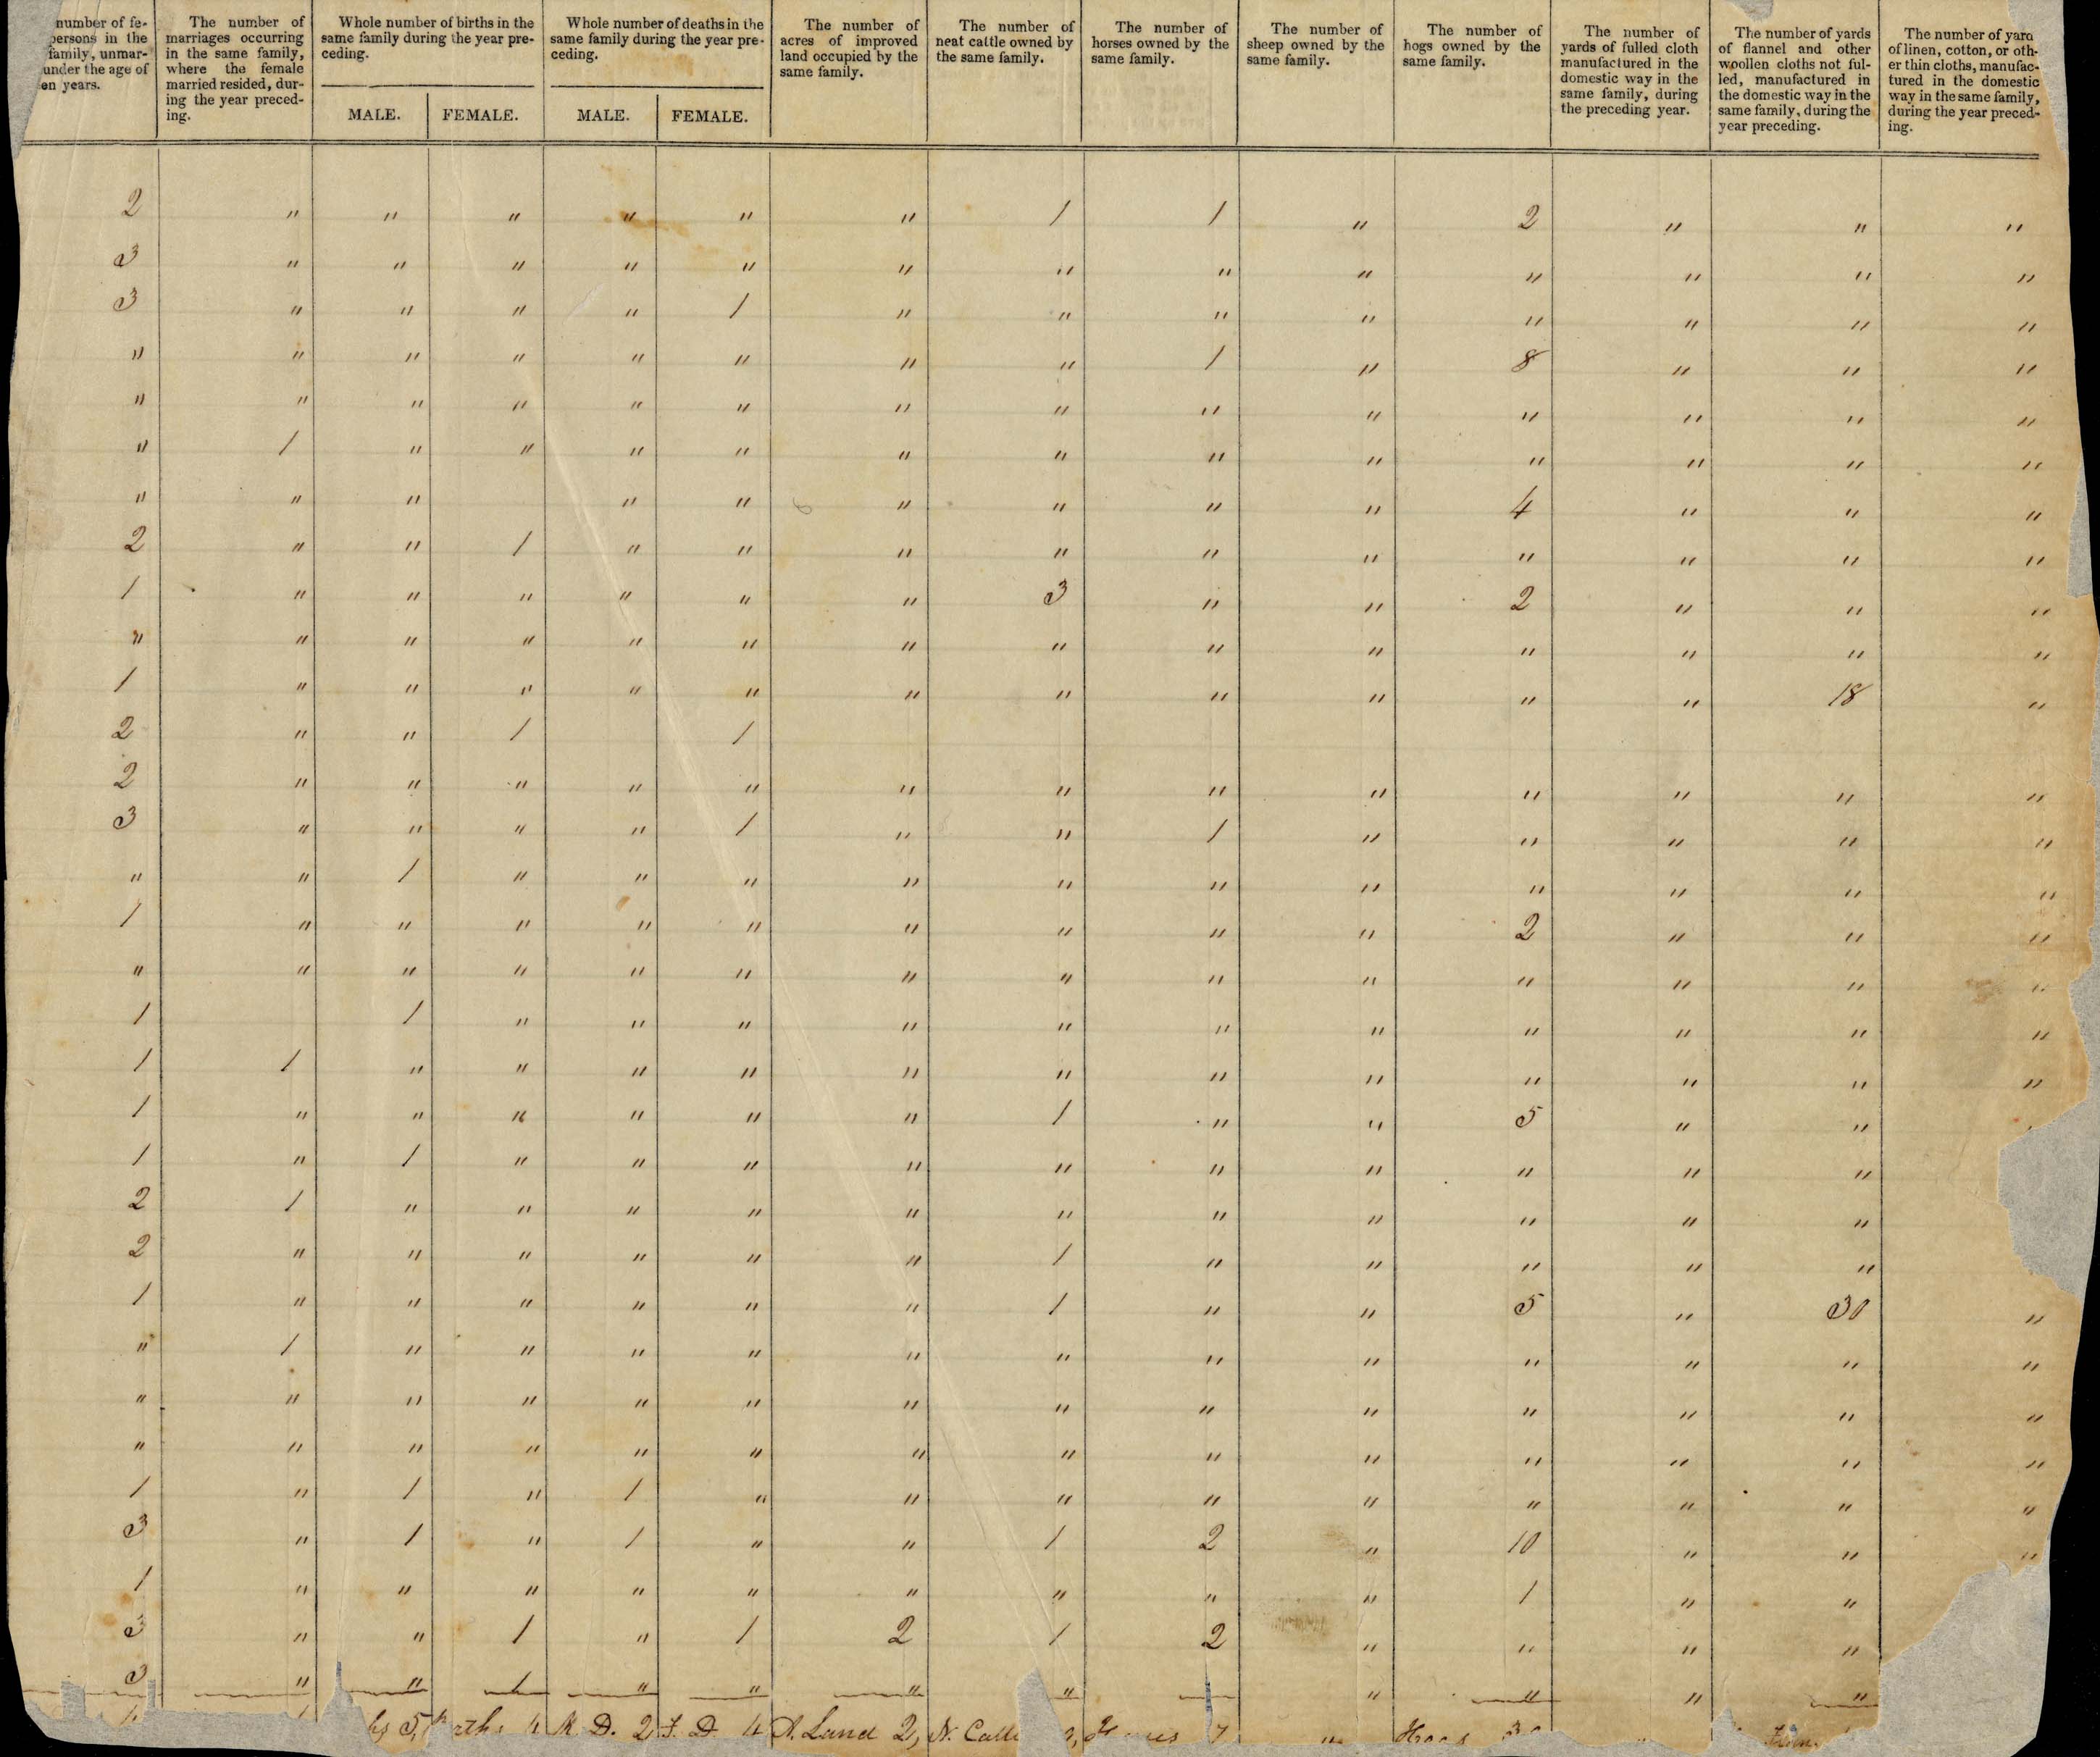 number of fe-
persons in the
family, unmar-
under the age of
en years.
The number of
marriages occurring
in the same family,
where the female
married resided, dur-
ing the year preced-
ing.
Whole number of births in the
same family during the year pre-
ceding.
MALE. FEMALE.
Whole number of deaths in the
same family during the year pre-
ceding.
MALE. FEMALE.
The number of
acres of improved
land occupied by the
same family.
The number of
neat cattle owned by
the same family.
The number of
horses owned by the
same family.
The number of
sheep owned by the
same family.
The number of
hogs owned by the
same family.
The number of
yards of fulled cloth
manufactured in the
domestic way in the
same family, during
the preceding year.
The number of yards
of flannel and other
woollen cloths not ful-
led, manufactured in
the domestic way in the
same family, during the
year preceding.
The number of yard
of linen, cotton, or oth-
er thin cloths, manufac-
tured in the domestic
way in the same family,
during the year preced-
ing.
2 " " " " " " 1 1 " 2 " " "
3 " " " " " " " " " " " " "
3 " " " " 1 " " " " " " " "
" " " " " " " " 1 " 8 " " "
" " " " " " " " " " " " " "
" 1 " " " " " " " " " " " "
" " " " " " " " " 4 " " "
2 " " 1 " " " " " " " " " "
1 " " " " " " 3 " " 2 " " "
" " " " " " " " " " " " " "
1 " " " " " " " " " " " 18 "
2 " " 1 1
2 " " " " " " " " " " " " "
3 " " " " 1 " " 1 " " " " "
" " 1 " " " " " " " " " " "
1 " " " " " " " " " 2 " " "
" " " " " " " " " " " " " "
1 1 " " " " " " " " " " "
1 1 " " " " " " " " " " " "
1 " " " " " " 1 " " 5 " "
1 " 1 " " " " " " " " " "
2 1 " " " " " " " " " " "
2 " " " " " " 1 " " " " "
1 " " " " " " 1 " " 5 " 30 "
" 1 " " " " " " " " " " " "
" " " " " " " " " " " " " "
" " " " " " " " " " " " " "
1 " 1 " 1 " " " " " " " " "
3 " 1 " 1 " " 1 2 " 10 " " "
1 " " " " " " " " " 1 " "
3 " " 1 " 1 2 1 2 " " " "
3 " " 1 " " " " " " " "
5, 4 M. D. 2 F. D. 4 A. Land 2, N. 7 "